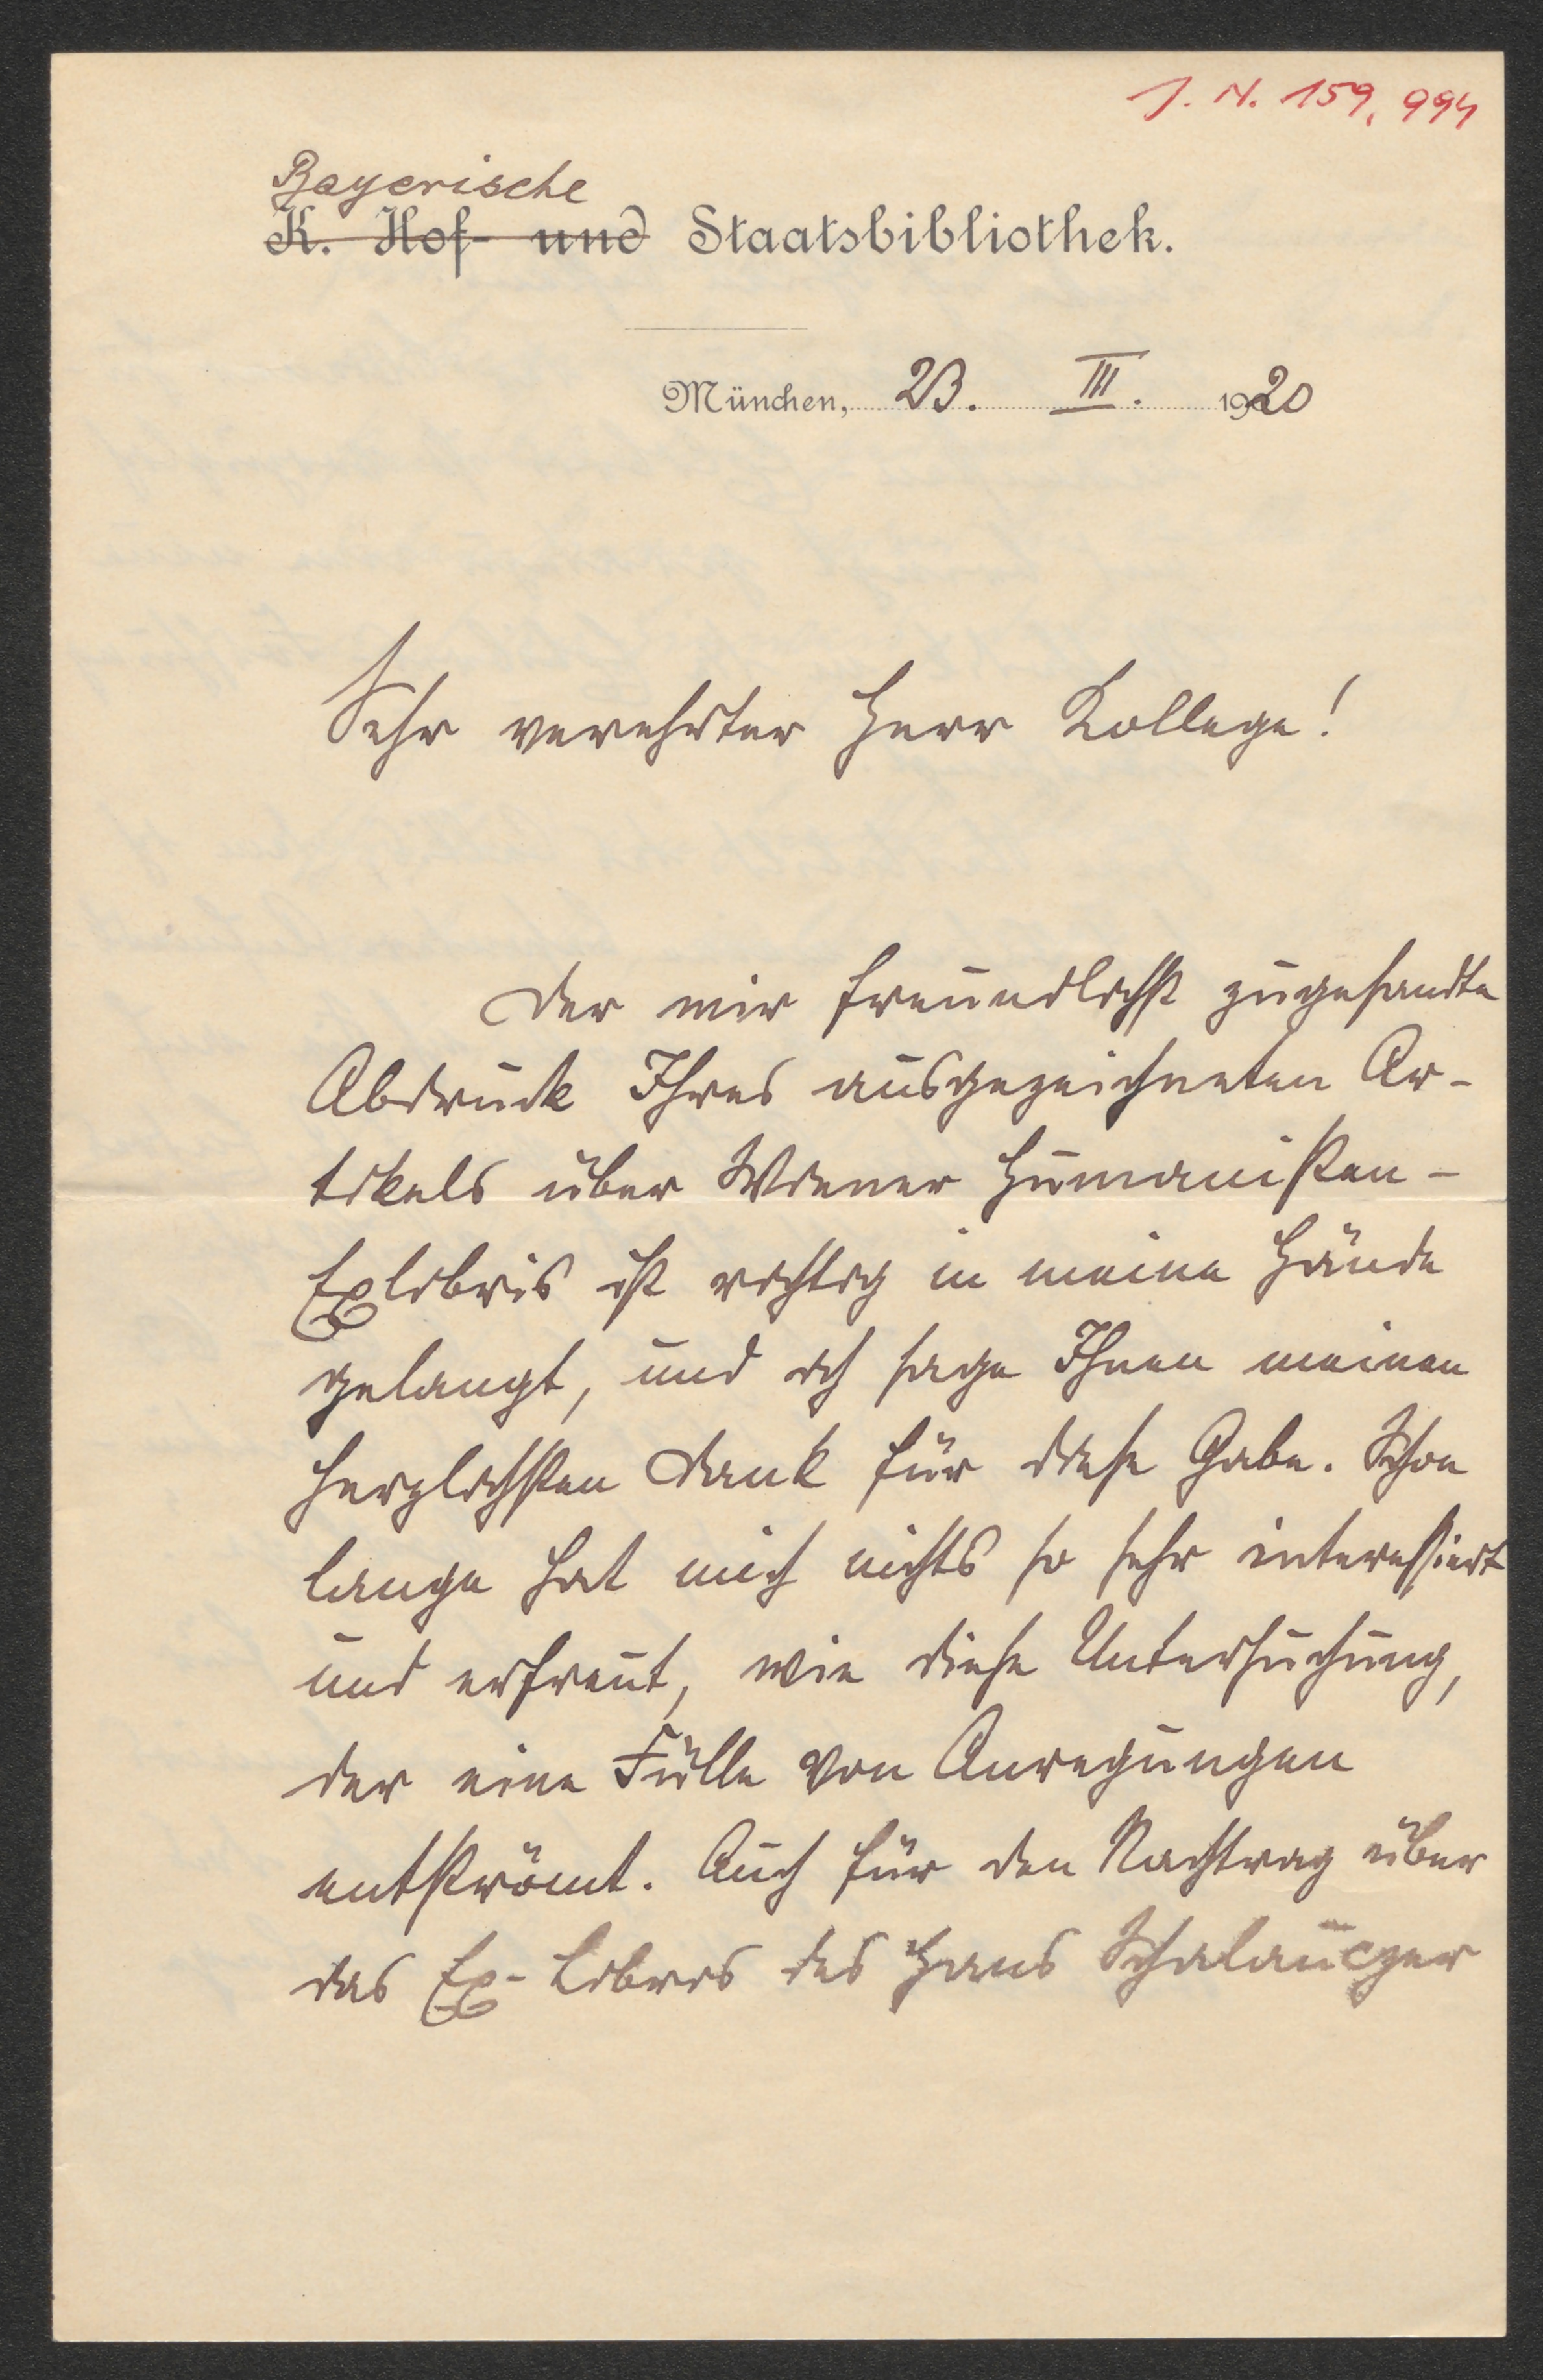 J. N. 159,994
Bayerische
K. Hof- und Staatsbibliothek.
München, 23. III. 1920
Sehr verehrter Herr Kollege!
Der mir freundlichst zugesandte
Abdruck Ihres ausgezeichneten Ar-
tikels über Wiener Humanisten-
Exlibris ist richtig in meine Hände
gelangt, und ich sage Ihnen meinen
herzlichsten Dank für diese Gabe. Schon
lange hat mich nichts so sehr interessiert
und erfreut, wie diese Untersuchung,
der eine Fülle von Anregungen
entströmt. Auch für den Nachtrag über
das Ex-Libris des Hans Schalauczer